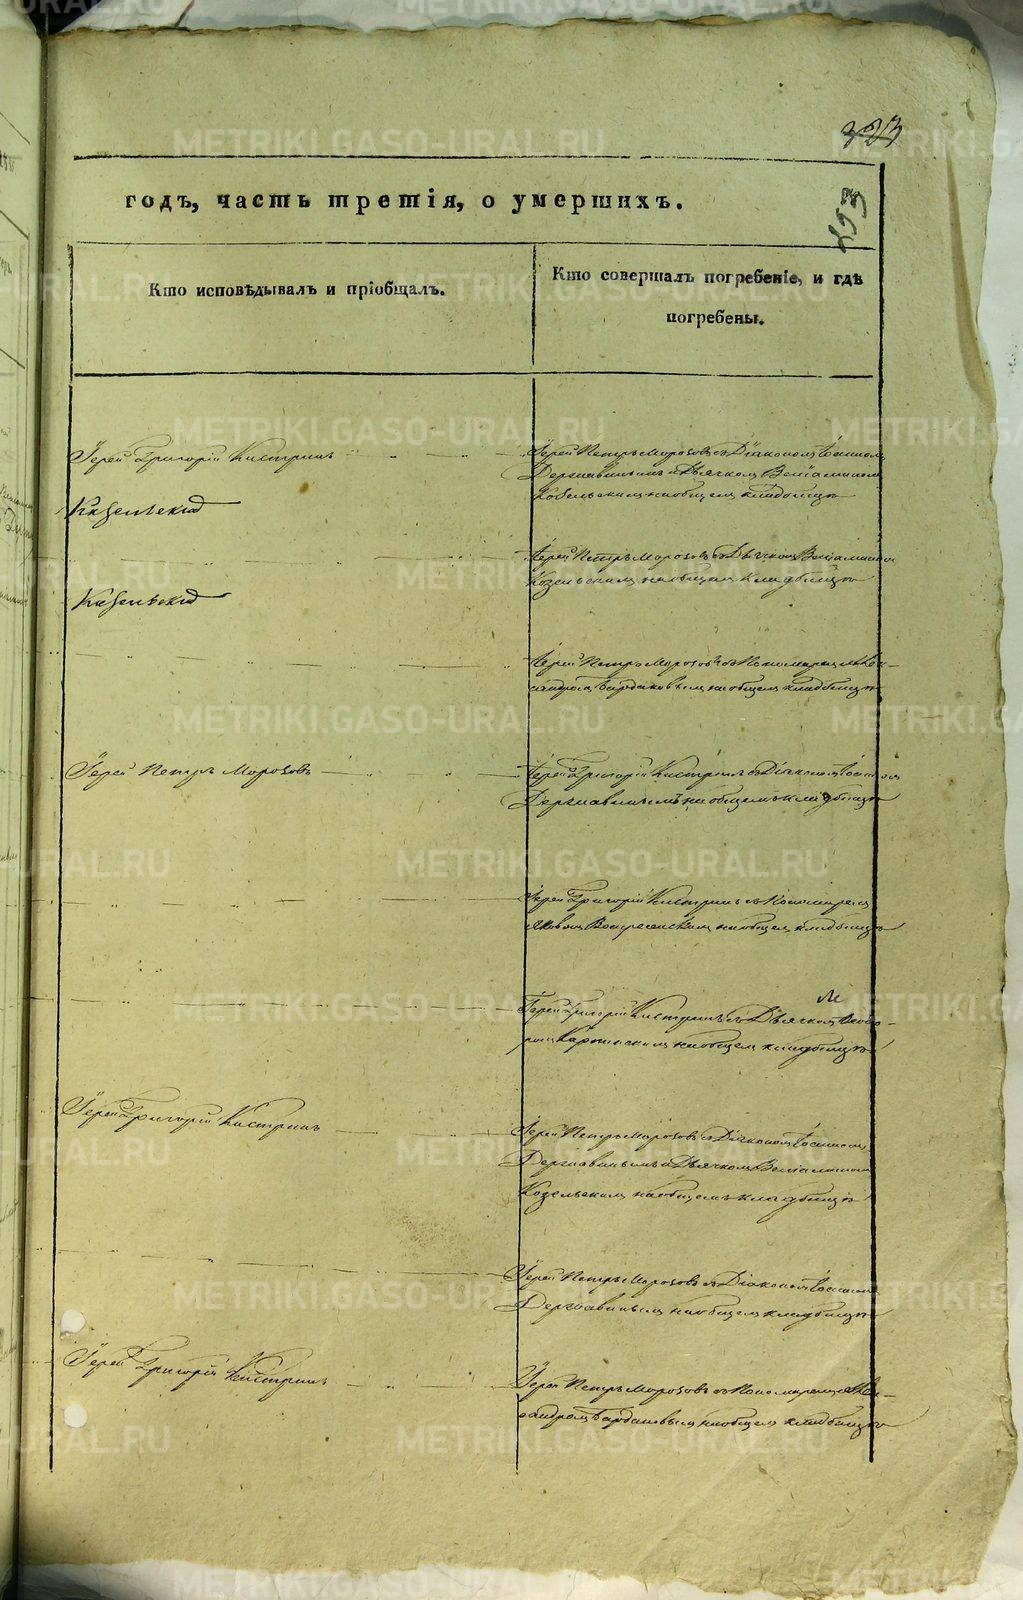 323
годъ, часть третія, о умершихъ.
293
Кто исповѣдывалъ и пріобщалъ.
Кто совершалъ погребеніе, и гдѣ
погребены.
Іерей Григорій Кистринъ
Іерей Петръ Морозовъ съ Діакономъ
Державинымъ и Дьячкомъ Веніаминомъ
Козельскимъ на общемъ кладбищѣ
Іерей Петръ Морозовъ съ Дьячкомъ Веніаминомъ
Козельскимъ на общемъ кладбищѣ
Іерей Петръ Морозовъ съ Пономаремъ Алек-
сандромъ Бардаковымъ на общемъ кладбищѣ
Іерей Петръ Морозовъ
Іерей Григорій Кистринъ съ Діакономъ
Державинымъ на общемъ кладбищѣ
Іерей Григорій Кистринъ съ Пономаремъ
Яковомъ Воскресенскимъ на общемъ кладбищѣ
Іерей Григорій Кистринъ съ Дьячкомъ
на общемъ кладбищѣ
Іерей Григорій Кистринъ
Іерей Петръ Морозовъ съ Діакономъ
Державинымъ и Дьячкомъ Веніаминомъ
Козельскимъ на общемъ кладбищѣ
Іерей Петръ Морозовъ съ Діакономъ
Державинымъ на общемъ кладбищѣ
Іерей Григорій Кистринъ
Іерей Петръ Морозовъ съ Пономаремъ Алек-
сандромъ Бардаковымъ на общемъ кладбищѣ
METRIKI.GASO-URAL.RU